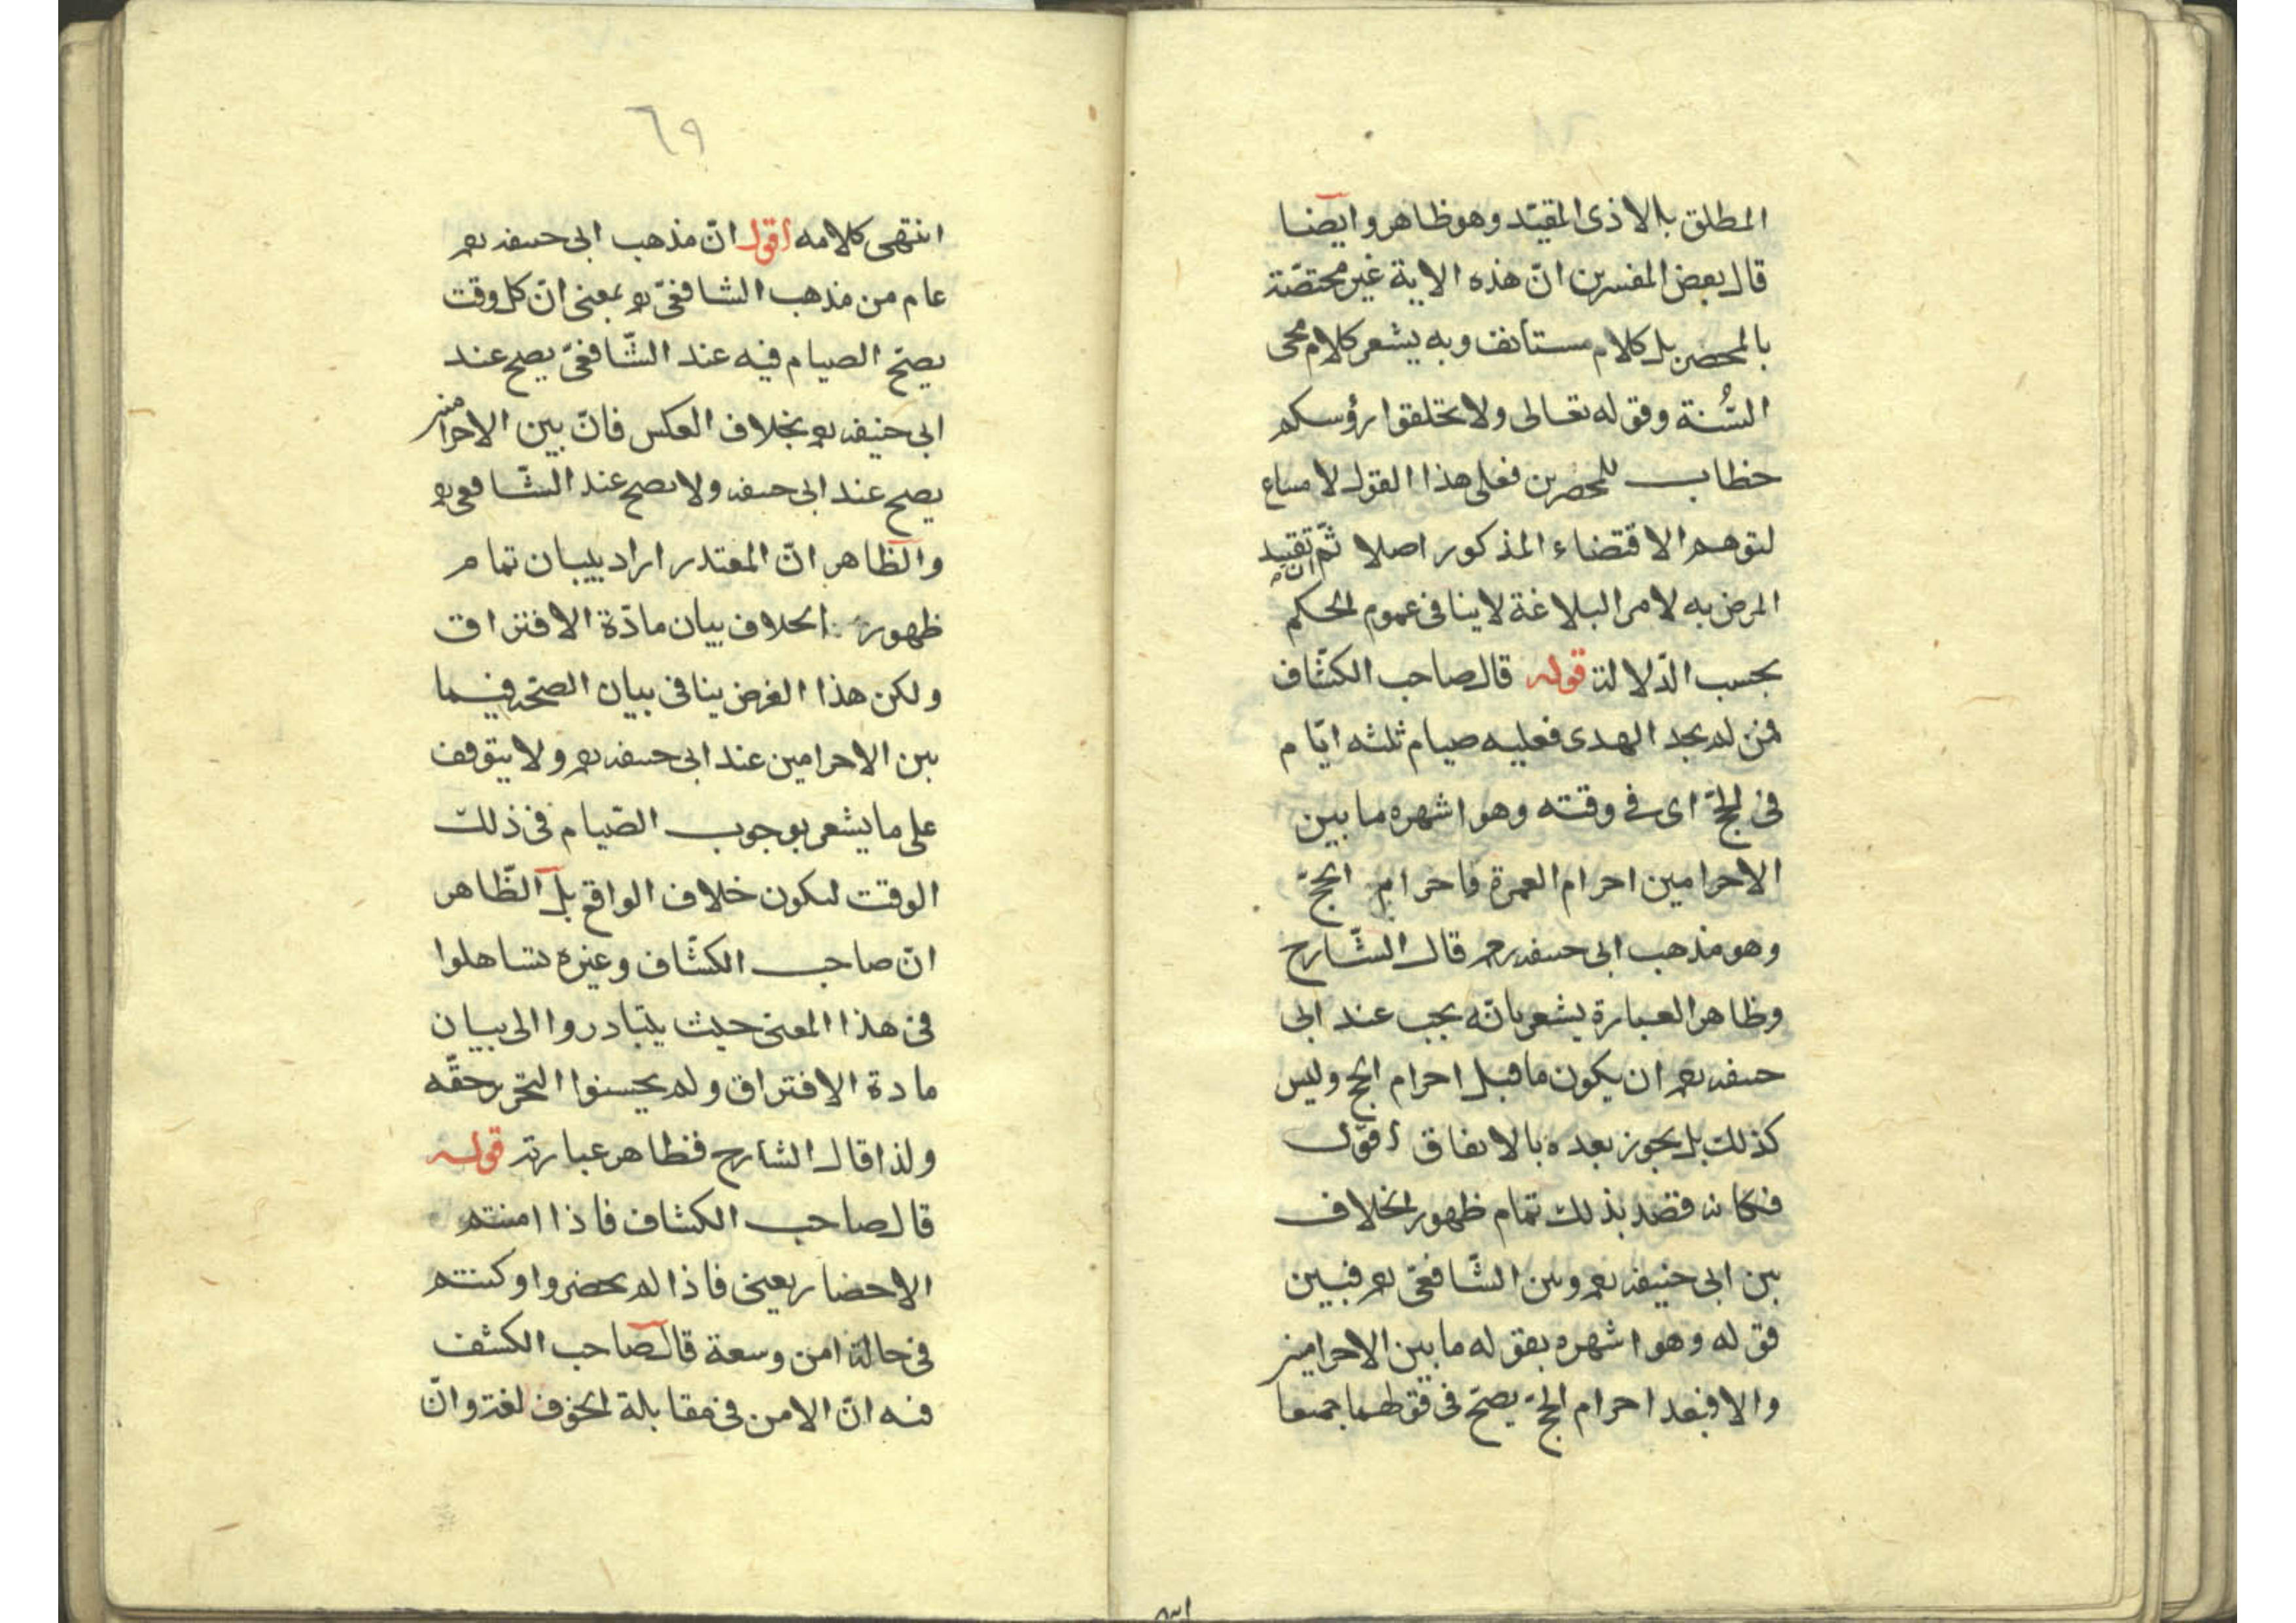 المطلق بالاذى المقيّد وهو ظاهر وايضا
قال بعض المفسرين انّ هذه الاية غير مختصّة
بالمحصرين بل كلام مستأنف وبه يشعر كلام محى
السُّنة وقوله تعالى ولا تحلقوا رؤسكم
خطاب للمحصرين فعلى هذا القول لا مساغ
لتوهم الاقتضاء المذكور اصلا ثمّ ان تقييد
المرض به لامر البلاغة لا ينافى عموم الحكم
بحسب الدّلالة قوله قال صاحب الكشّاف
فمن لم يجد الهدى فعليه صيام ثلثه ايّام
فى الحجّ اى فى وقته وهو اشهره ما بين
الاحرامين احرام العمرة واحرام الحجّ
وهو مذهب ابى حنيفه رحمه قال الشّارح
وظاهر العبارة يشعر بانّه يجب عند ابى
حنيفه رحمه ان يكون ما قبل احرام الحج وليس
كذلك بل يجوز بعده بالاتفاق أقول
فكانه قصد بذلك تمام ظهور الخلاف
بين ابى حنيفه رحمه وبين الشّافعىّ رحمه فبين
قوله وهو اشهره بقوله ما بين الاحرامين
والا فبعد احرام الحجّ يصحّ فى قولهما جميعا
٦٩
انتهى كلامه أقول انّ مذهب ابى حنيفه رحمه
عام من مذهب الشافعىّ رح بمعنى انّ كل وقت
يصحّ الصيام فيه عند الشّافعىّ يصح عند
ابى حنيفه رح بخلاف العكس فانّ بين الاحرامين
يصح عند ابى حنيفه ولا يصح عند الشّافعى رح
والظّاهر انّ المعتذر اراد ببيان تمام
ظهور الخلاف بيان مادّة الافتراق
ولكن هذا الغرض ينافى بيان الصحّه فيما
بين الاحرامين عند ابى حنيفه رحمه ولا يتوقف
على ما يشعر بوجوب الصّيام فى ذلك
الوقت ليكون خلاف الواقع بل الظّاهر
انّ صاحب الكشّاف وغيره تساهلوا
فى هذا المعنى حيث يتبادروا الى بيان
مادة الافتراق ولم يحسنوا التحرير حقّه
ولذا قال الشارح فظاهر عبارته قوله
قال صاحب الكشاف فاذا امنتم
الاحصار يعنى فاذا لم تحصروا وكنتم
فى حالة امن وسعة قال صاحب الكشف
فيه انّ الامن فى مقابلة الخوف لغة وانّ